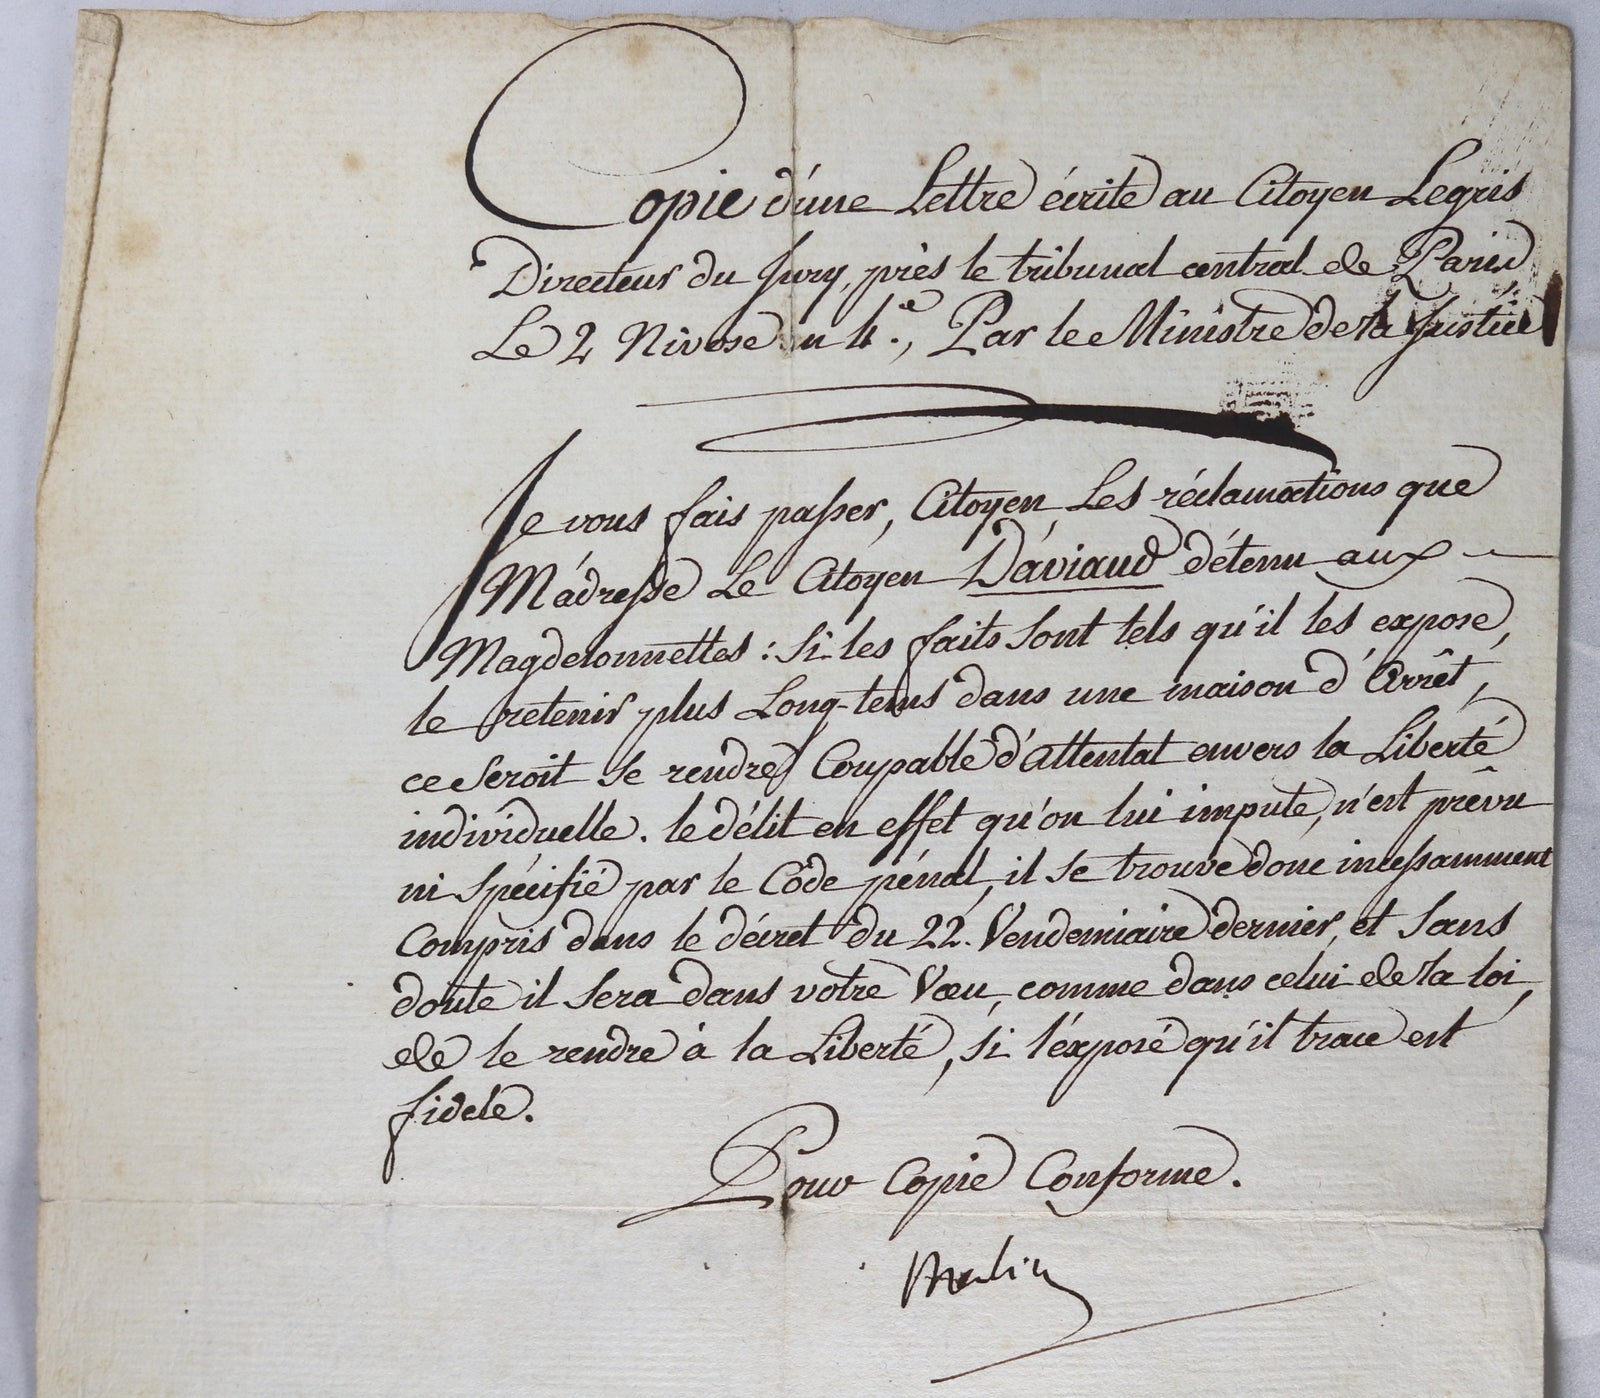 Copie d'une Lettre écrite au Citoyen Legris
Directeur du Jury, près le tribunal central de Paris
Le 2 Nivose an 4.e, Par le Ministre de la Justice
Je vous fais passer, Citoyen, Les réclamations que
M'adresse Le Citoyen Daviaud détenu aux
Magdelonnettes : Si les faits Sont tels qu'il les expose,
le retenir plus Long-tems dans une maison d'Arrêt,
ce Seroit Se rendre Coupable d'attentat envers la Liberté
individuelle. le délit en effet qu'on lui impute, n'est prévu
ni Spécifié par le Code pénal, il se trouve donc incessamment
Compris dans le décret du 22. Vendemiaire dernier, et Sans
doute il Sera dans votre Vœu, comme dans celui de la loi,
de le rendre à la Liberté, Si l'exposé qu'il trace est
fidele.
Pour Copie Conforme.
Merlin